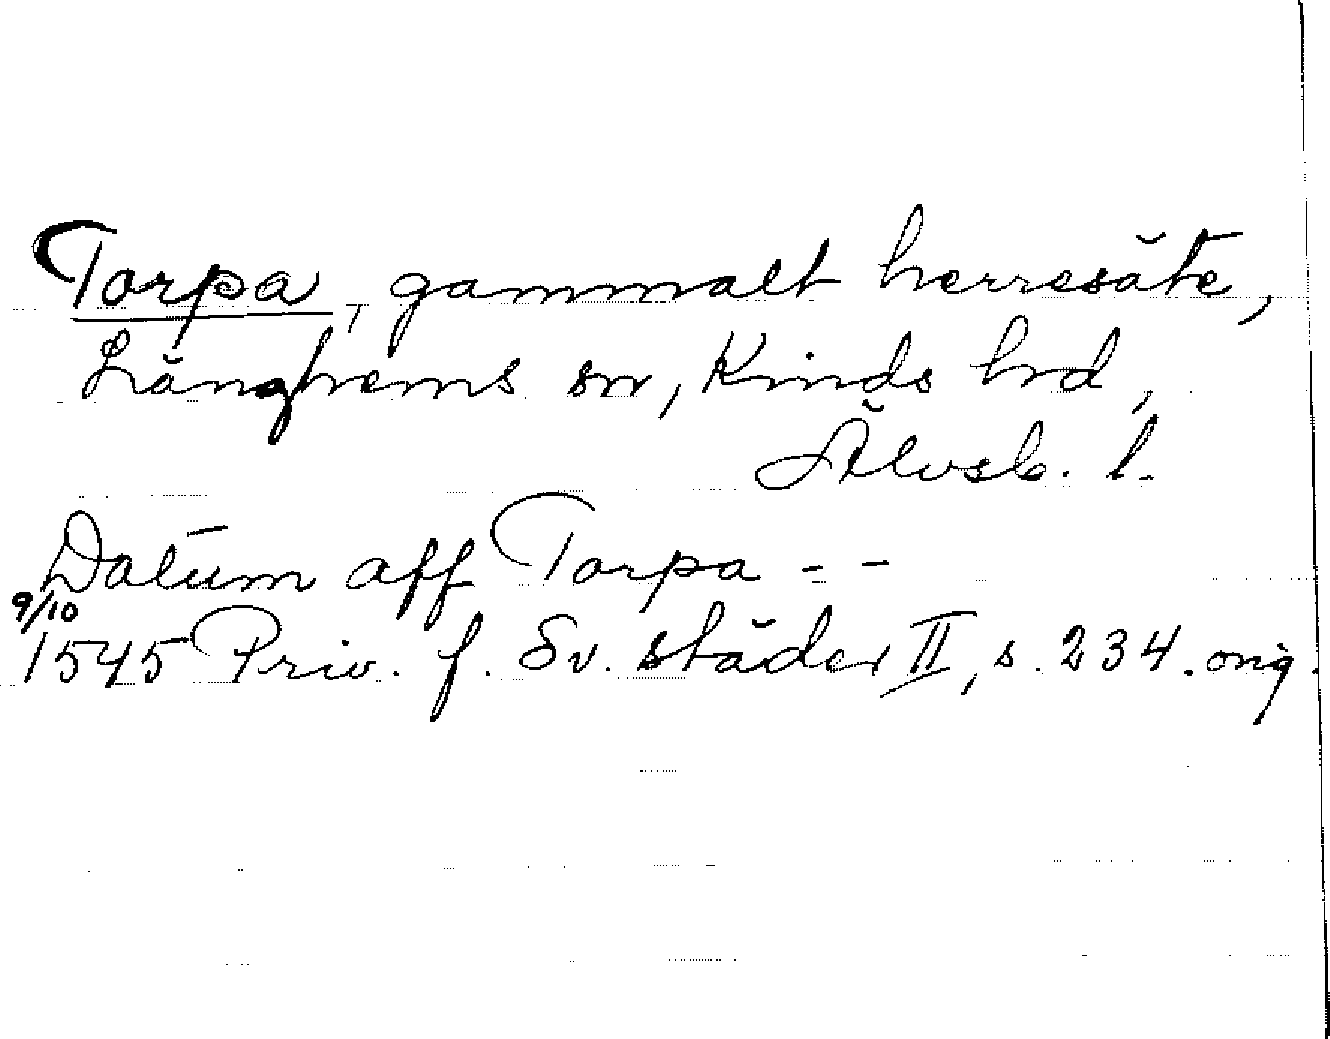 Torpa, gammalt herresäte,
Länghems sn, Kinds hrd,
Älvsb. l.
Datum aff Torpa - -
9/10
1545 Priv. f. Sv. städer II, s. 234. orig.